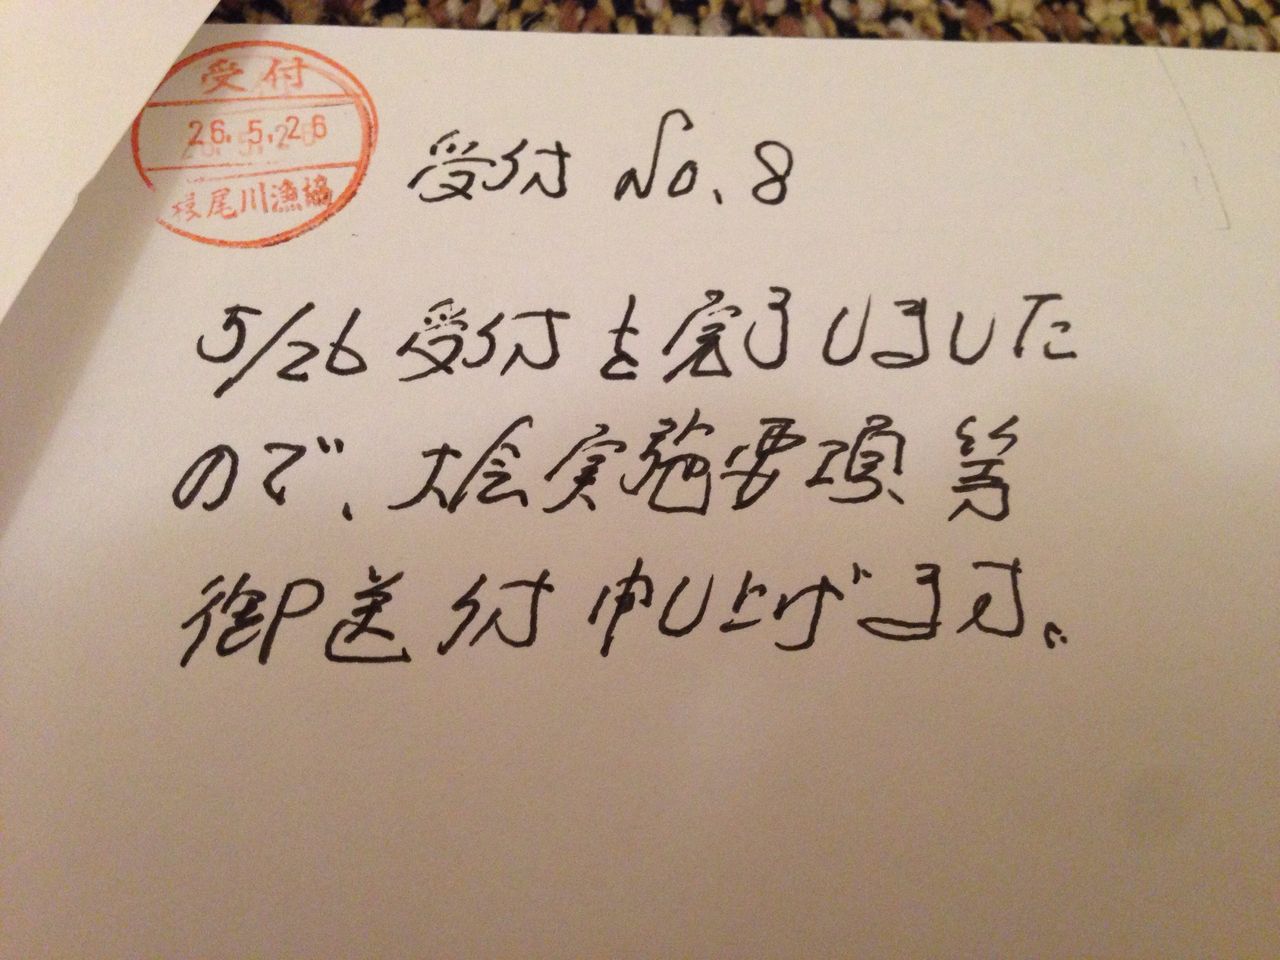 受付
26.5.26
尾川漁協
受付 No.8
5/26 受付を完了しました
ので、大会実施要項等
御送付申し上げます。